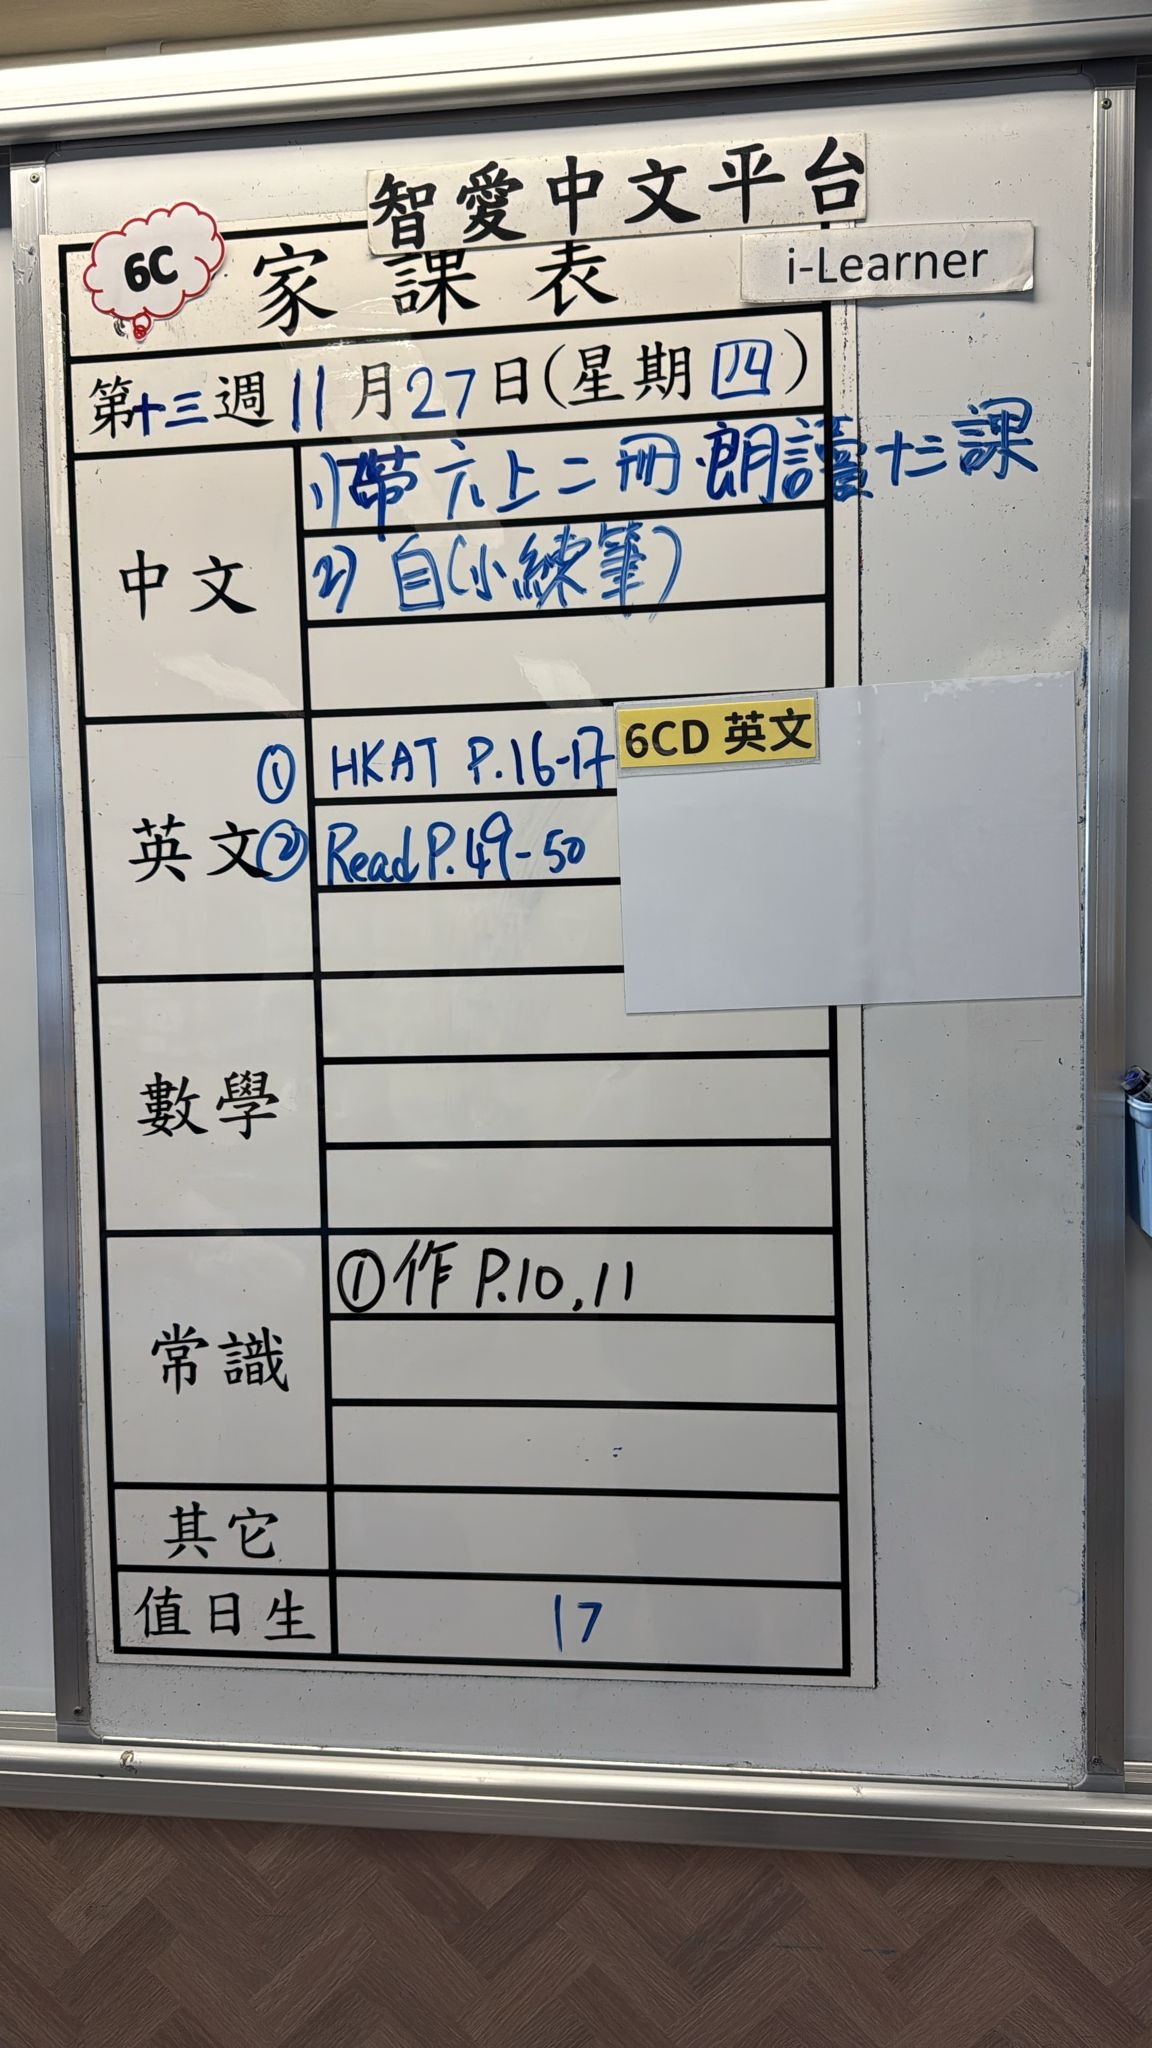 智愛中文平台
6C
家課表
i-Learner
第十三週11月27日(星期四)
中文
1)帶六上二冊.朗讀十三課
2)自(小練筆)
英文
① HKAT P.16-17
② Read P.49-50
6CD 英文
數學
常識
①作 P.10,11
其它
值日生
17